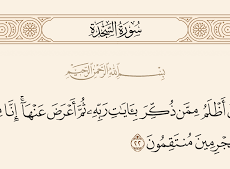 سُورَةُ السَّجْدَةِ
بِسْمِ اللَّهِ الرَّحْمَٰنِ الرَّحِيمِ
أَظْلَمُ مِمَّن ذُكِّرَ بِـَٔايَٰتِ رَبِّهِۦ ثُمَّ أَعْرَضَ عَنْهَآ ۚ إِنَّا
مُنتَقِمُونَ ٢٢